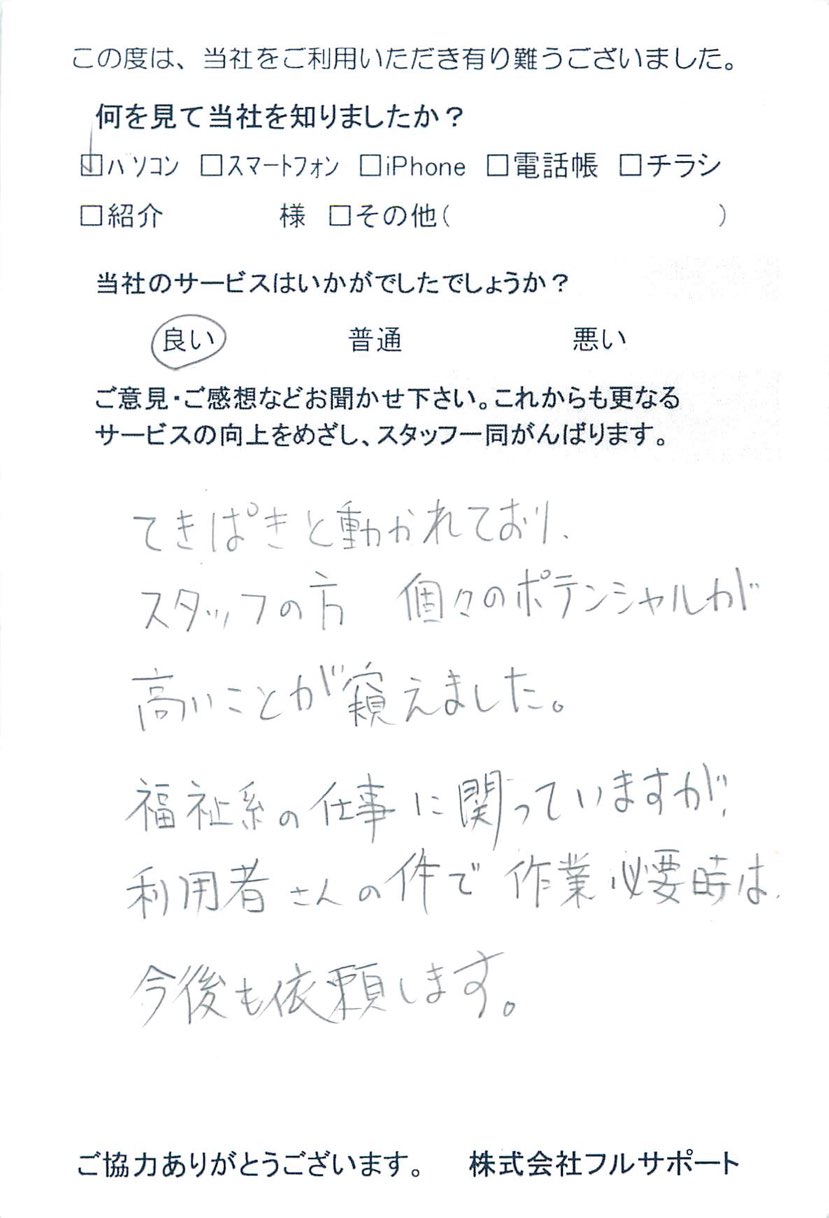 この度は、当社をご利用いただき有り難うございました。
何を見て当社を知りましたか？
□パソコン □スマートフォン □iPhone □電話帳 □チラシ
□紹介 様 □その他( )
当社のサービスはいかがでしたでしょうか？
良い 普通 悪い
ご意見・ご感想などお聞かせ下さい。これからも更なる
サービスの向上をめざし、スタッフ一同がんばります。
てきぱきと動かれており、
スタッフの方 個々のポテンシャルが
高いことが窺えました。
福祉系の仕事に関っていますが、
利用者さんの件で作業必要時は、
今後も依頼します。
ご協力ありがとうございます。 株式会社フルサポート